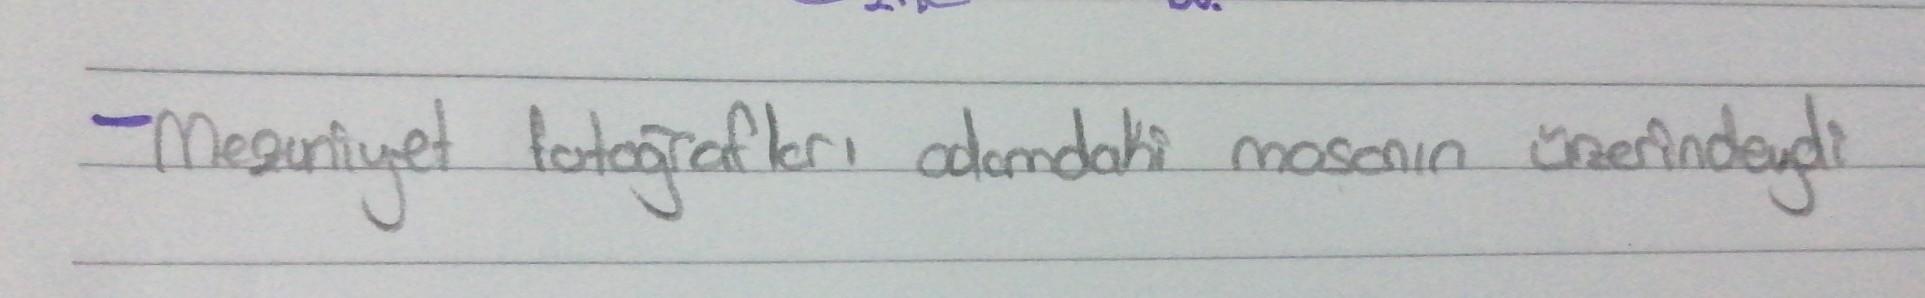 -Mezuniyet fotoğrafları odamdaki masanın üzerindeydi